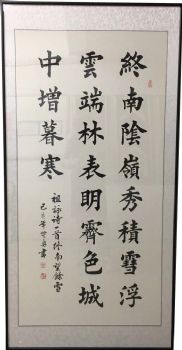 終南陰嶺秀積雪浮
雲端林表明霽色城
中增暮寒
祖詠詩一首終南望餘雪